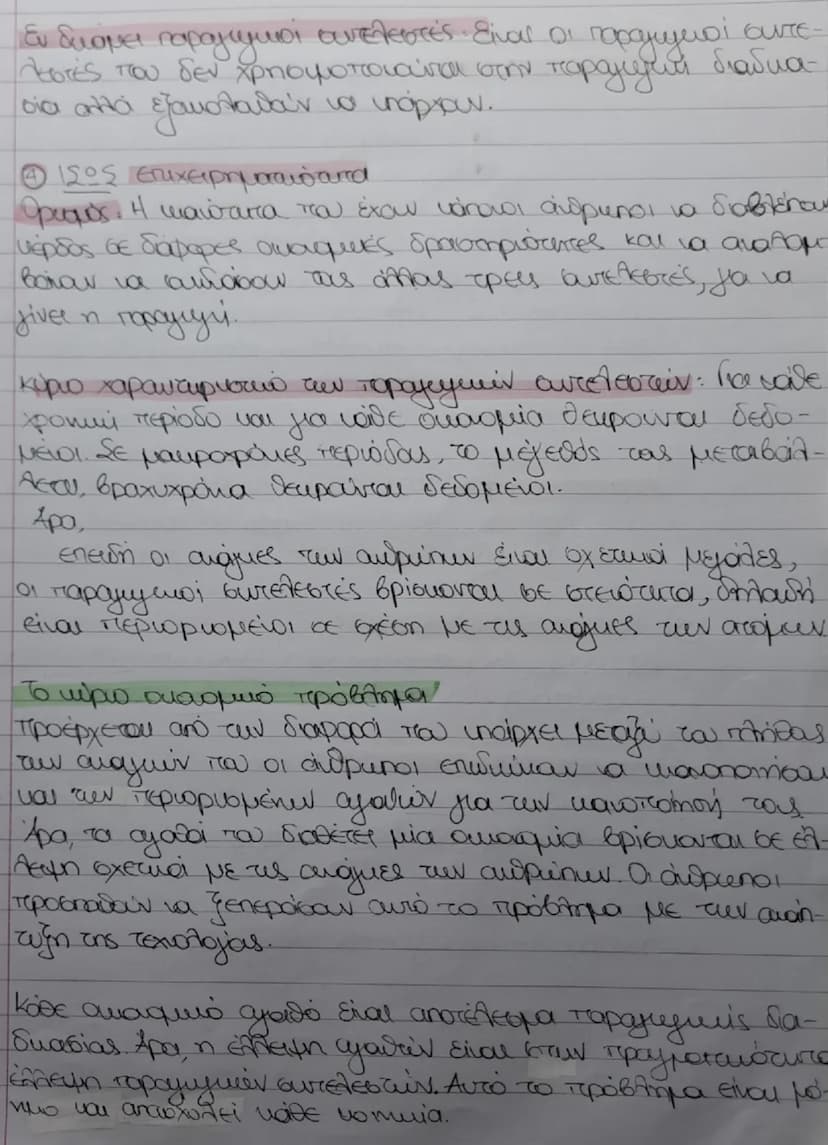 Εν δυνάμει παραγωγικοί συντελεστές. Είναι οι παραγωγικοί συντε-
λεστές που δεν χρησιμοποιούνται στην παραγωγική διαδικα-
σία αλλά εξακολουθούν να υπάρχουν.
④ 1505 επιχειρηματικότητα
Ορισμός. Η ικανότητα που έχουν κάποιοι άνθρωποι να διαβλέπουν
κέρδος σε διάφορες οικονομικές δραστηριότητες και να αναλαμ-
βάνουν να συνδυάσουν τους άλλους τρεις συντελεστές, για να
γίνει η παραγωγή.
Κύριο χαρακτηριστικό των παραγωγικών συντελεστών: Για κάθε
χρονική περίοδο και για κάθε οικονομία θεωρούνται δεδο-
μένοι. Σε μακροχρόνιες περιόδους, το μέγεθός τους μεταβάλ-
λεται, βραχυχρόνια θεωρούνται δεδομένοι.
Άρα,
επειδή οι ανάγκες των ανθρώπων είναι σχετικά μεγάλες,
οι παραγωγικοί συντελεστές βρίσκονται σε στενότητα, δηλαδή
είναι περιορισμένοι σε σχέση με τις ανάγκες των ατόμων
Το κύριο οικονομικό πρόβλημα
Προέρχεται από την διαφορά που υπάρχει μεταξύ του πλήθους
των αναγκών που οι άνθρωποι επιδιώκουν να ικανοποιήσουν
και των περιορισμένων αγαθών για την ικανοποίησή τους
Άρα, τα αγαθά που διαθέτει μία οικονομία βρίσκονται σε έλ-
λειψη σχετικά με τις ανάγκες των ανθρώπων. Οι άνθρωποι
προσπαθούν να ξεπεράσουν αυτό το πρόβλημα με την ανάπ-
τυξη της τεχνολογίας.
Κάθε οικονομικό αγαθό είναι αποτέλεσμα παραγωγικής δια-
δικασίας. Άρα, η έλλειψη αγαθών είναι στην πραγματικότητα
έλλειψη παραγωγικών συντελεστών. Αυτό το πρόβλημα είναι μό-
νιμο και απασχολεί κάθε κοινωνία.